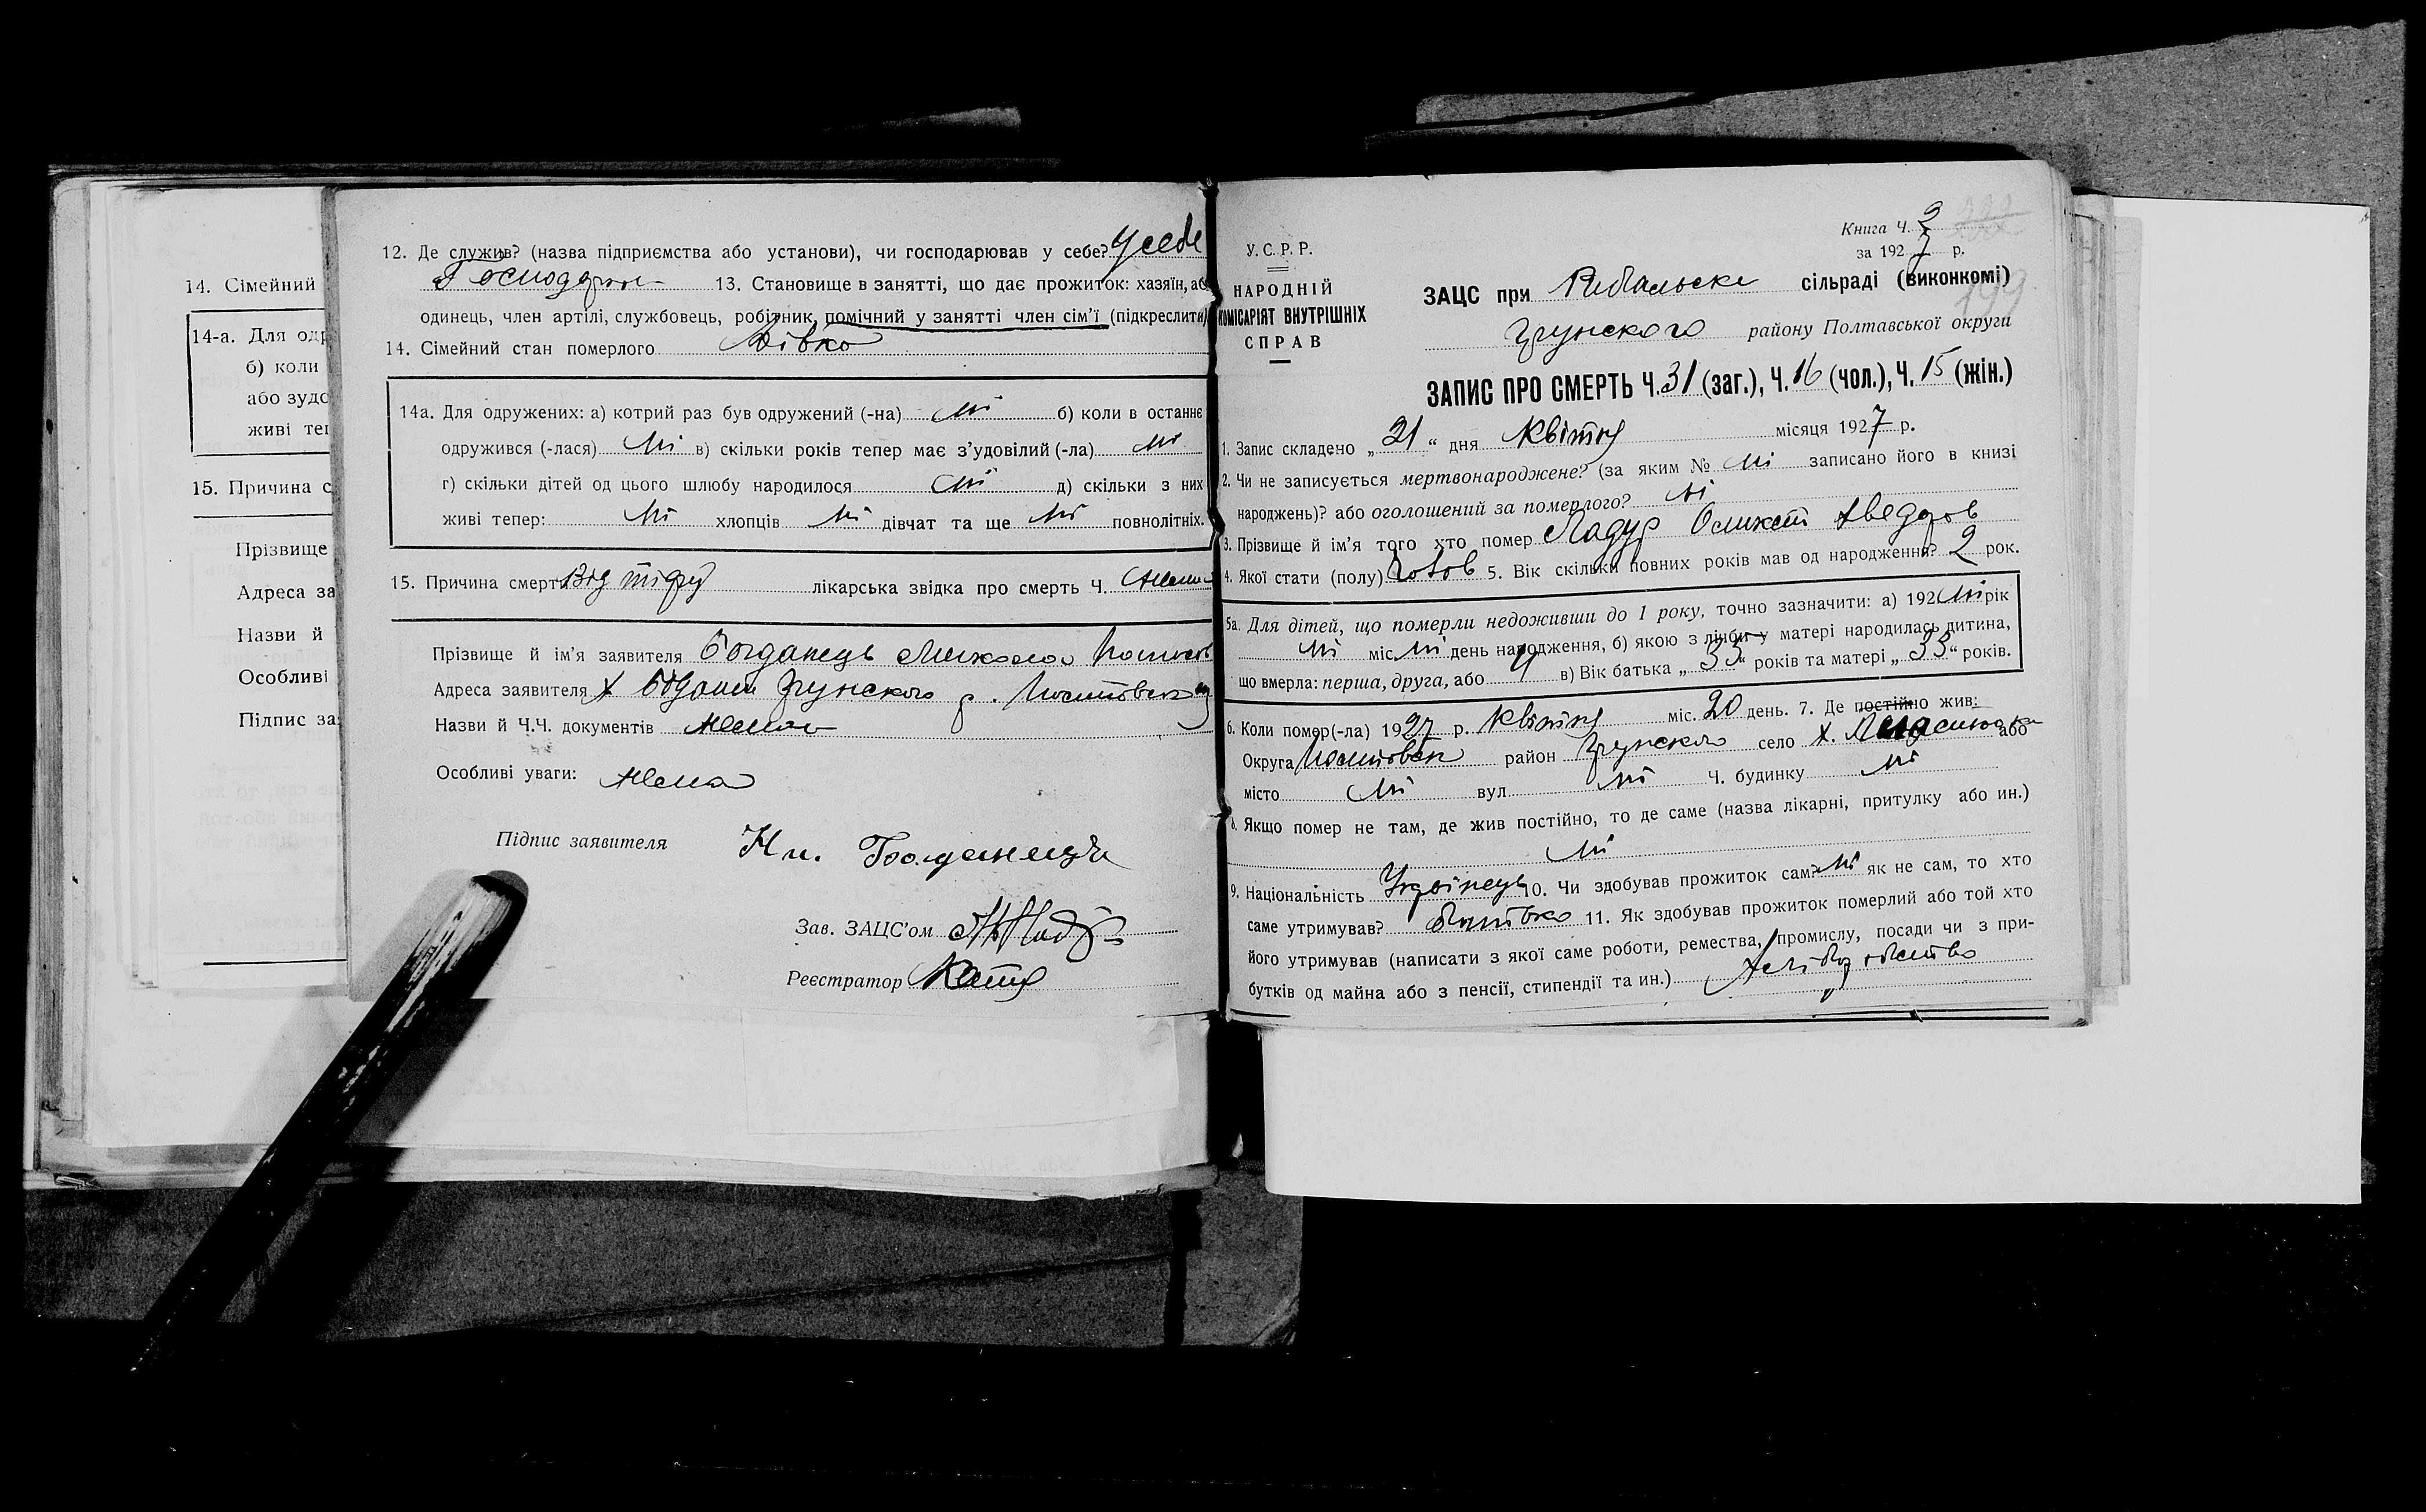 14. Сімейний
14-а. Для одр
б) коли
або зудо
живі теп
15. Причина с
Прізвище
Адреса за
Назви й
Особливі
Підпис за
12. Де служив? (назва підприємства або установи), чи господарював у себе? У себе
13. Становище в занятті, що дає прожиток: хазяїн, аб
одинець, член артілі, службовець, робітник, помічний у занятті член сім'ї (підкреслити)
14. Сімейний стан померлого
14а. Для одружених: а) котрий раз був одружений (-на) ні б) коли в останнє
одружився (-лася) ні в) скільки років тепер має з'удовілий (-ла) ні
г) скільки дітей од цього шлюбу народилося ні д) скільки з них
живі тепер: ні хлопців ні дівчат та ще ні повнолітніх.
15. Причина смерти Від лікарська звідка про смерть Ч. Нема
Прізвище й ім'я заявителя Богданець Микола
Адреса заявителя х Грунського р.
Назви й Ч.Ч. документів Нема
Особливі уваги: Нема
Підпис заявителя Ни. Богданець
Зав. ЗАЦС'ом
Реєстратор
У.С.Р.Р.
НАРОДНІЙ
КОМІСАРІЯТ ВНУТРІШНІХ
СПРАВ
Книга Ч. 2
за 1927 р.
199
ЗАЦС при Рибальське сільраді (виконкомі)
Грунского району Полтавської округи
ЗАПИС ПРО СМЕРТЬ Ч. 31 (заг.), Ч. 16 (чол.), Ч. 15 (жін.)
1. Запис складено „21“ дня Квітня місяця 1927 р.
2. Чи не записується мертвонароджене? (за яким № ні записано його в книзі
народжень)? або оголошений за померлого? ні
3. Прізвище й ім'я того хто помер
4. Якої стати (полу) 5. Вік скільки повних років мав од народження? 2 рок.
5а. Для дітей, що померли недоживши до 1 року, точно зазначити: а) 192 ні рік
ні міс ні день народження, б) якою з лічби у матері народилась дитина,
що вмерла: перша, друга, або 4 в) Вік батька „35“ років та матері „35“ років.
6. Коли помер(-ла) 1927 р. Квітня міс. 20 день. 7. Де постійно жив:
Округа район Грунського село х. або
місто ні вул. ні Ч. будинку ні
8. Якщо помер не там, де жив постійно, то де саме (назва лікарні, притулку або ин.)
ні
9. Національність Українець 10. Чи здобував прожиток сам? ні як не сам, то хто
саме утримував? батько 11. Як здобував прожиток померлий або той хто
його утримував (написати з якої саме роботи, ремества, промислу, посади чи з при-
бутків од майна або з пенсії, стипендії та ин.) хліборобство